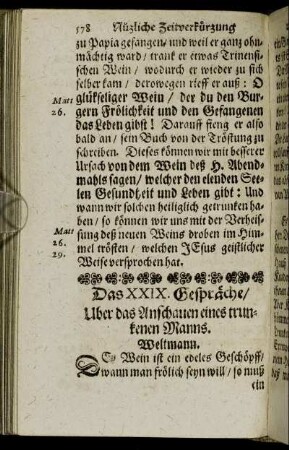 178 Nüzliche Zeitverkürzung
zu Papia gefangen/ und weil er ganz ohn-
mächtig ward/ trank er etwas Trinensi-
schen Wein/ wodurch er wieder zu sich
selber kam/ derowegen rieff er auß: O
glükseliger Wein/ der du den Bur-
gern Frölichkeit und den Gefangenen
das Leben gibst! Darauff fieng er also
bald an/ sein Buch von der Tröstung zu
schreiben. Dieses können wir mit besserer
Ursach von dem Wein deß H. Abend-
mahls sagen/ welcher den elenden See-
len Gesundheit und Leben gibt: Und
wann wir solchen heiliglich getrunken ha-
ben/ so können wir uns mit der Verheis-
sung deß neuen Weins droben im Him-
mel trösten/ welchen JEsus geistlicher
Weise versprochen hat.
Matt
26.
Matt
26.
29.
Das XXIX. Gespräche/
Uber das Anschauen eines trun-
kenen Manns.
Weltmann.
DEr Wein ist ein edeles Geschöpff/
wann man frölich seyn will/ so muß
ein